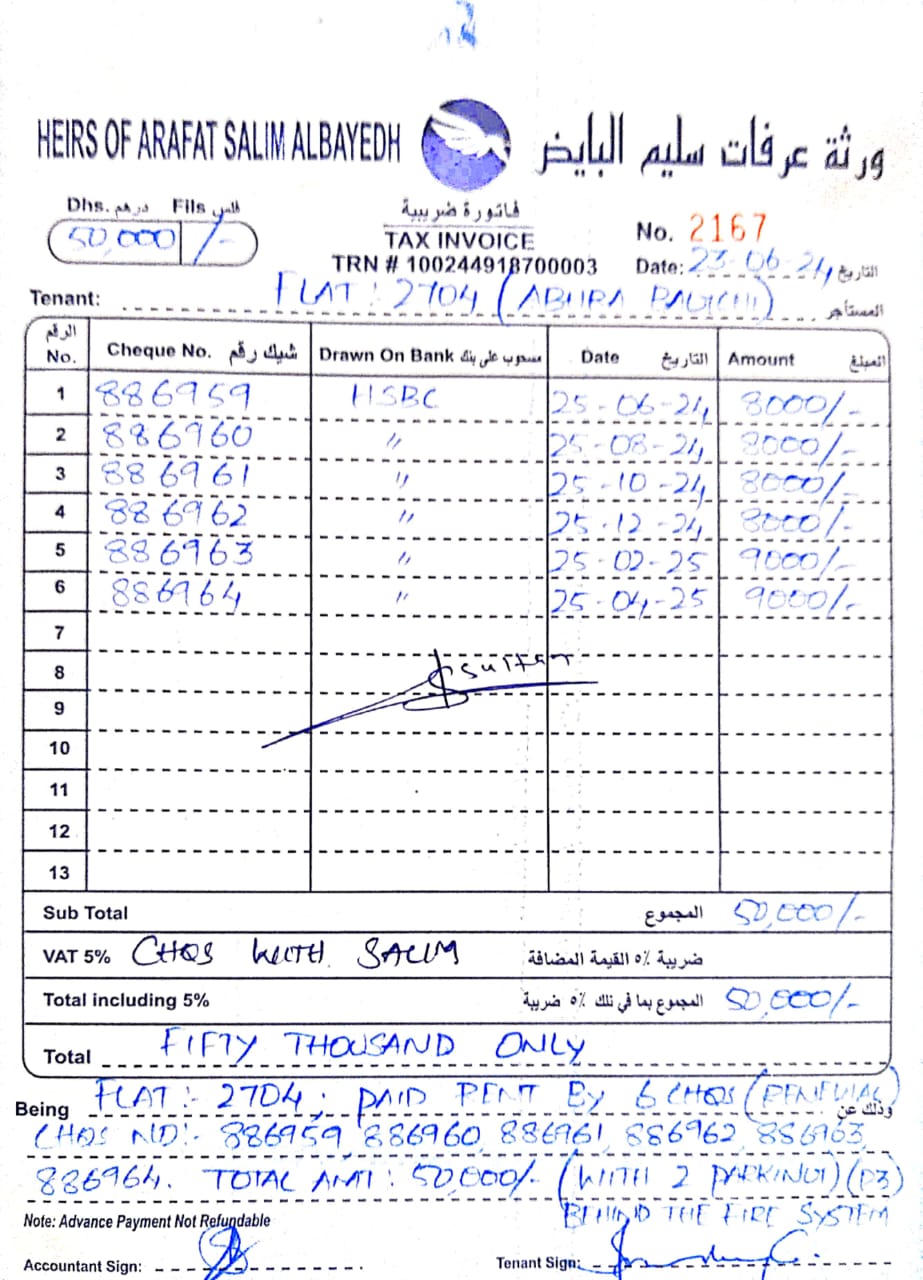 HEIRS OF ARAFAT SALIM ALBAYEDH ورثة عرفات سليم البايض
Dhs. درهم Fils فلس
50,000 /-
فاتورة ضريبية
TAX INVOICE
TRN # 100244918700003
No. 2167
Date: 23-06-24 التاريخ
Tenant: FLAT : 2704 (ABHRA PAUICHI) المستأجر
الرقم No. Cheque No. شيك رقم Drawn On Bank مسحوب على بنك Date التاريخ Amount المبلغ
1 886959 HSBC 25-06-24 8000/-
2 886960 " 25-08-24 8000/-
3 886961 " 25-10-24 8000/-
4 886962 " 25-12-24 8000/-
5 886963 " 25-02-25 9000/-
6 886964 " 25-04-25 9000/-
7
8 Sultan
9
10
11
12
13
Sub Total المجموع 50,000/-
VAT 5% CHQS WITH SALIM ضريبة ٥% القيمة المضافة
Total including 5% المجموع بما في تلك ٥% ضريبة 50,000/-
Total FIFTY THOUSAND ONLY
Being FLAT :- 2704; PAID RENT By 6 CHQS (RENEWAL) وذلك عن
CHQS NO:- 886959, 886960, 886961, 886962, 886963,
886964. TOTAL AMT : 50,000/- (WITH 2 PARKING) (P3)
BEHIND THE FIRE SYSTEM
Note: Advance Payment Not Refundable
Accountant Sign: Tenant Sign: